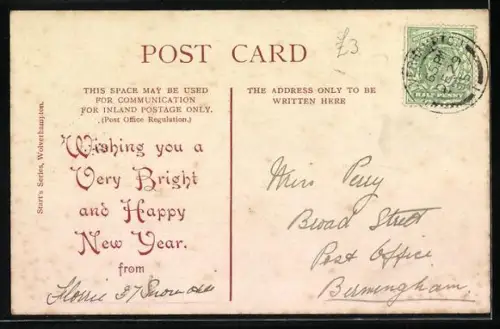 £3
POST CARD
THIS SPACE MAY BE USED
FOR COMMUNICATION
FOR INLAND POSTAGE ONLY.
(Post Office Regulation.)
THE ADDRESS ONLY TO BE
WRITTEN HERE
Start's Series, Wolverhampton.
Wishing you a
Very Bright
and Happy
New Year.
from
Florrie
Miss Perry
Broad Street
Post Office
Birmingham
HALFPENNY